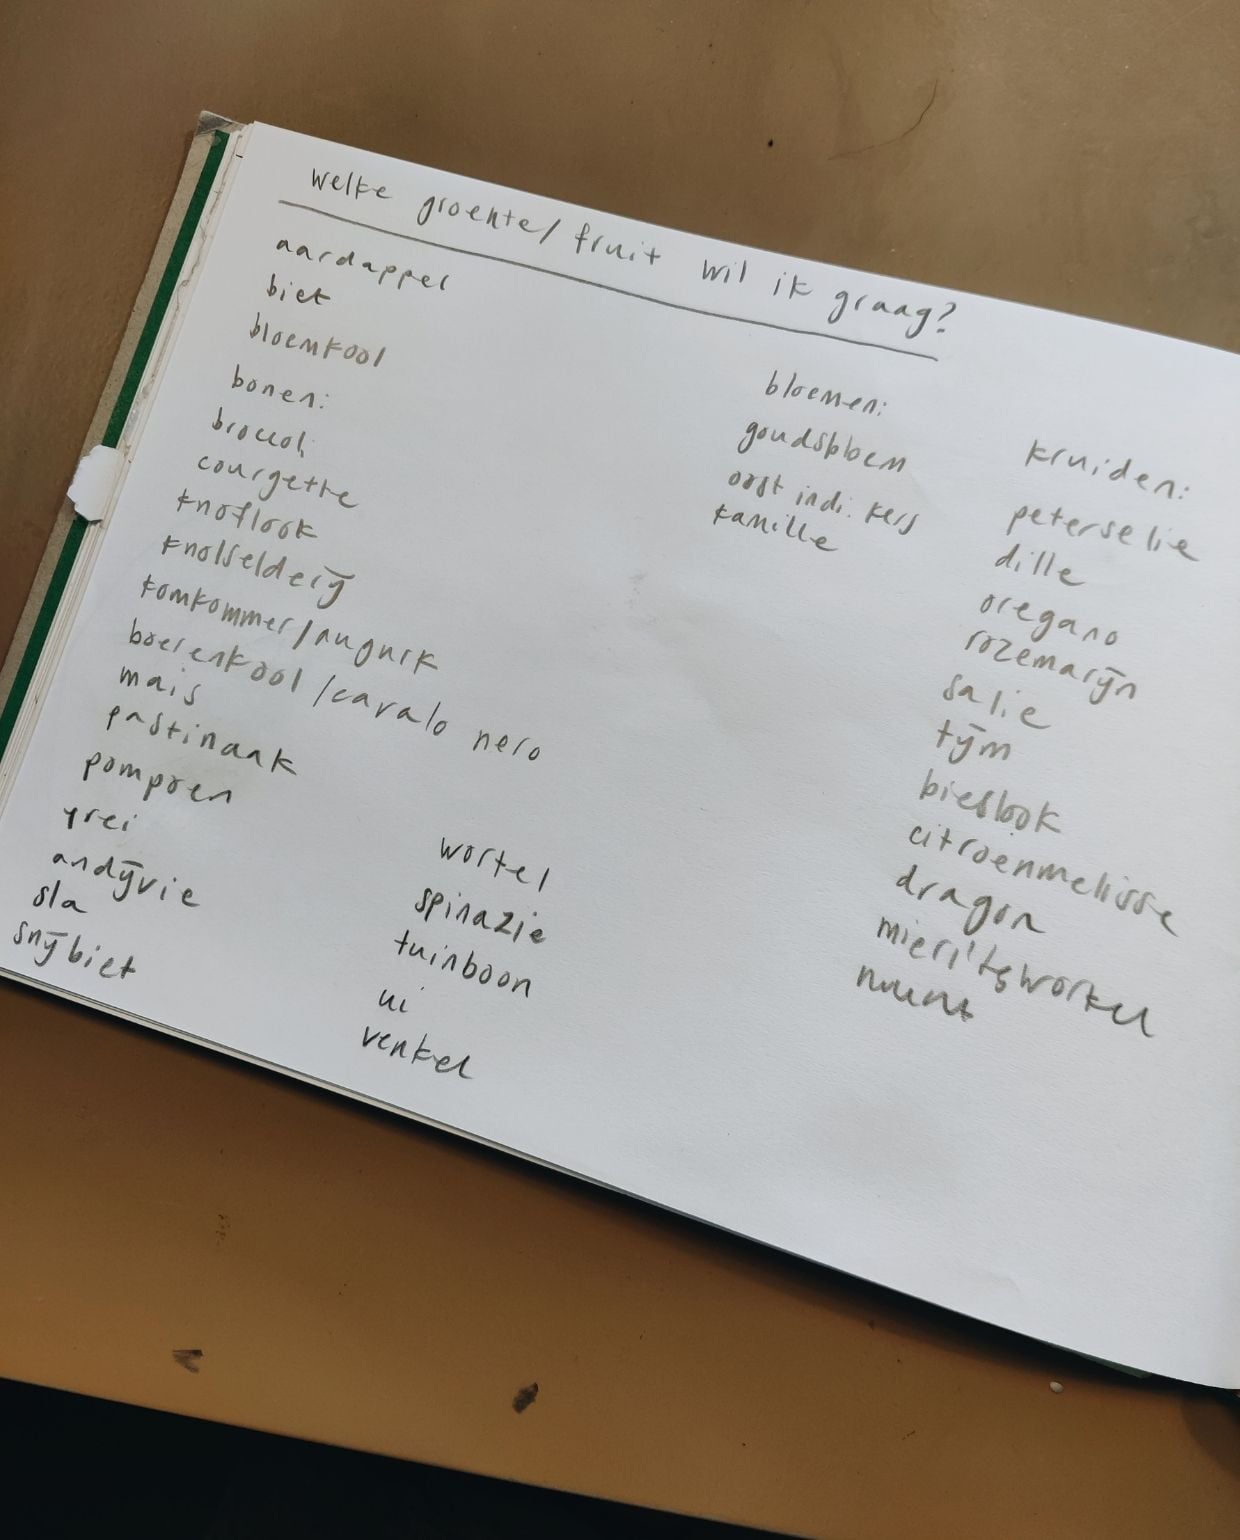 welke groente/fruit wil ik graag?
aardappel
biet
bloemkool
bonen:
broccoli
courgette
knoflook
knolselderij
komkommer/augurk
boerenkool/cavalo nero
mais
pastinaak
pompoen
prei
andijvie
sla
snijbiet
wortel
spinazie
tuinboon
ui
venkel
bloemen:
goudsbloem
oost indi. kers
kamille
kruiden:
peterselie
dille
oregano
rozemarijn
salie
tijm
bieslook
citroenmelisse
dragon
mierikswortel
munt